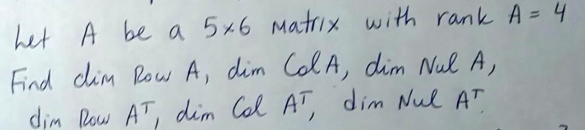 Let A be a 5×6 Matrix with rank A = 4
Find dim Row A, dim Col A, dim Nul A,
dim Row Aᵀ, dim Col Aᵀ, dim Nul Aᵀ.